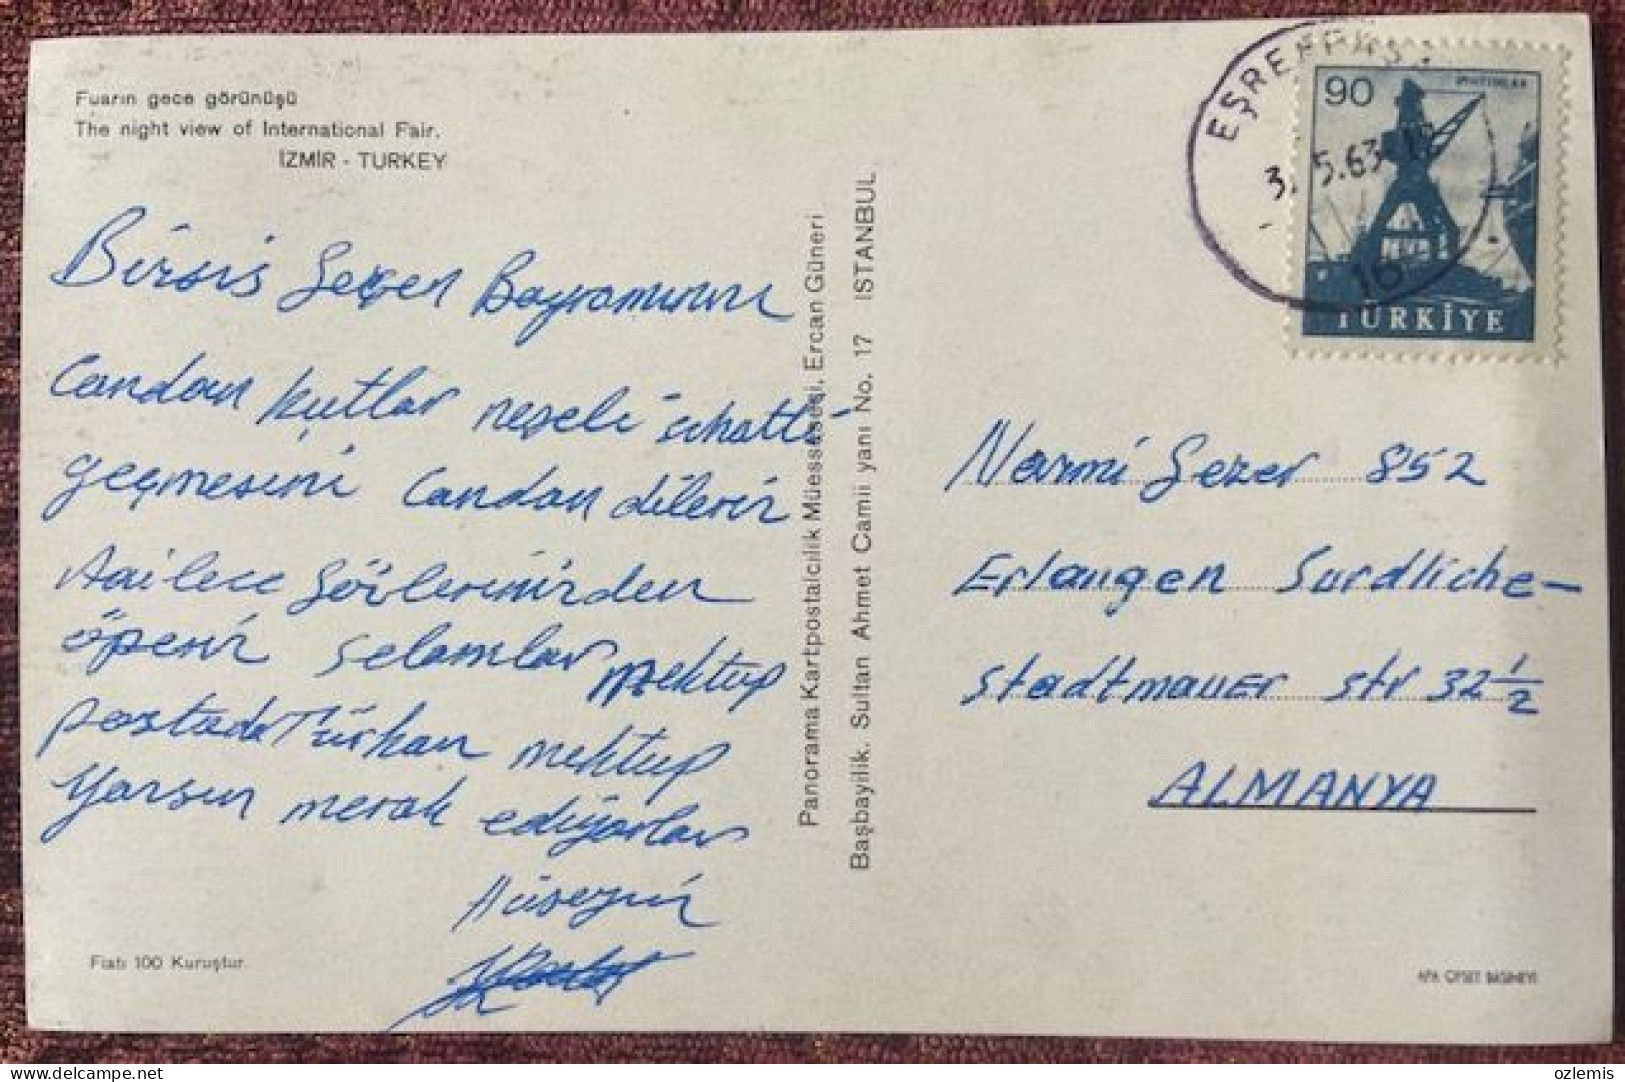 Fuarın gece görünüşü
The night view of International Fair.
İZMİR - TURKEY
Bayramınını
Candan kutlar neşeli sıhatli
geçmesini Candan dilerin
Aailece gözlerinizden
öperir selamlar mektup
postada Türkan mektup
yazsın merak ediyorlar
Hüseyin
Fiatı 100 Kuruştur.
Panorama Kartpostalcilik Müessesesi, Ercan Güneri
Başbayilik. Sultan Ahmet Camii yanı No. 17 ISTANBUL
EŞREFPAŞA
3. 5.63
16
90
TÜRKİYE
Nermi Sezer 852
Erlangen Surdliche-
stadtmauer str 32 1/2
ALMANYA
APA OFSET BASIMEVİ
ozlemis
delcampe.net